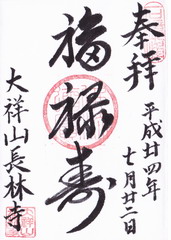 奉拝
平成廿四年
七月廿二日
福禄寿
大祥山長林寺